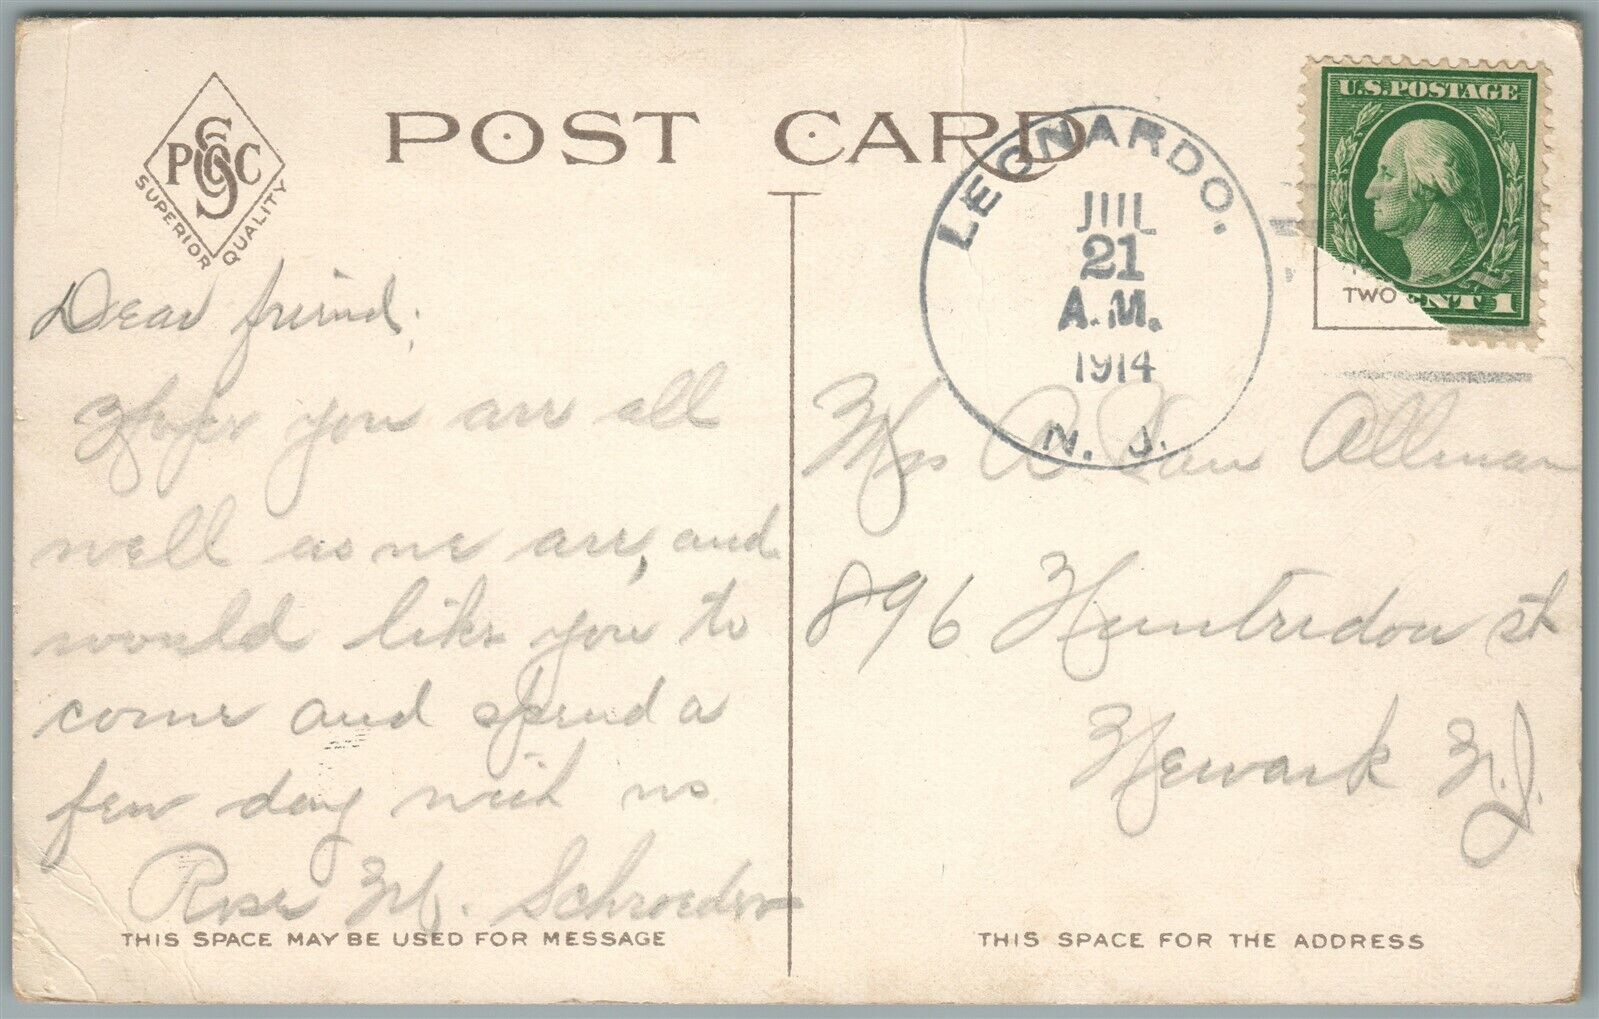 POST CARD
PSCC
SUPERIOR QUALITY
U.S.POSTAGE
TWO
NT 1
LEONARDO.
JUL
21
A.M.
1914
N. J.
Dear friend,
Hope you are all
well as we are, and
would like you to
come and spend a
few day with us
Rose M. Schroeder
Mrs A Van Allman
896 Huntredon st
Newark N.J.
THIS SPACE MAY BE USED FOR MESSAGE
THIS SPACE FOR THE ADDRESS